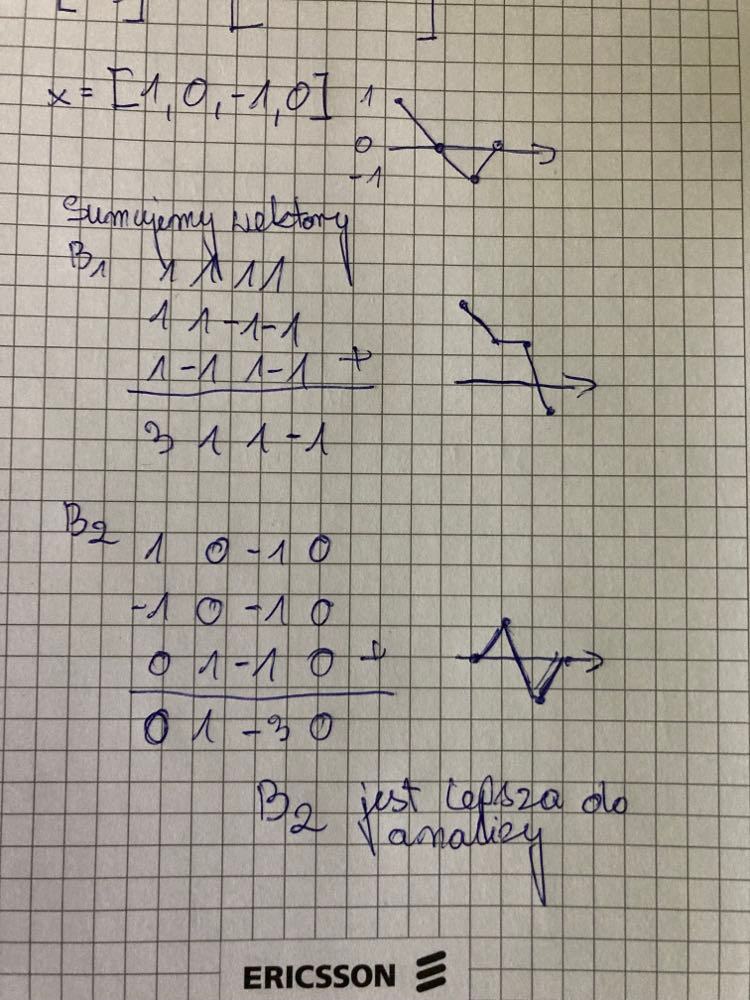 x = [1, 0, -1, 0]
1
0
-1
Sumujemy wektory
B1 1 1 1 1
1 1 -1 -1
1 -1 1 -1 +
3 1 1 -1
B2 1 0 -1 0
-1 0 -1 0
0 1 -1 0 +
0 1 -3 0
B2 jest lepsza do
analizy
ERICSSON